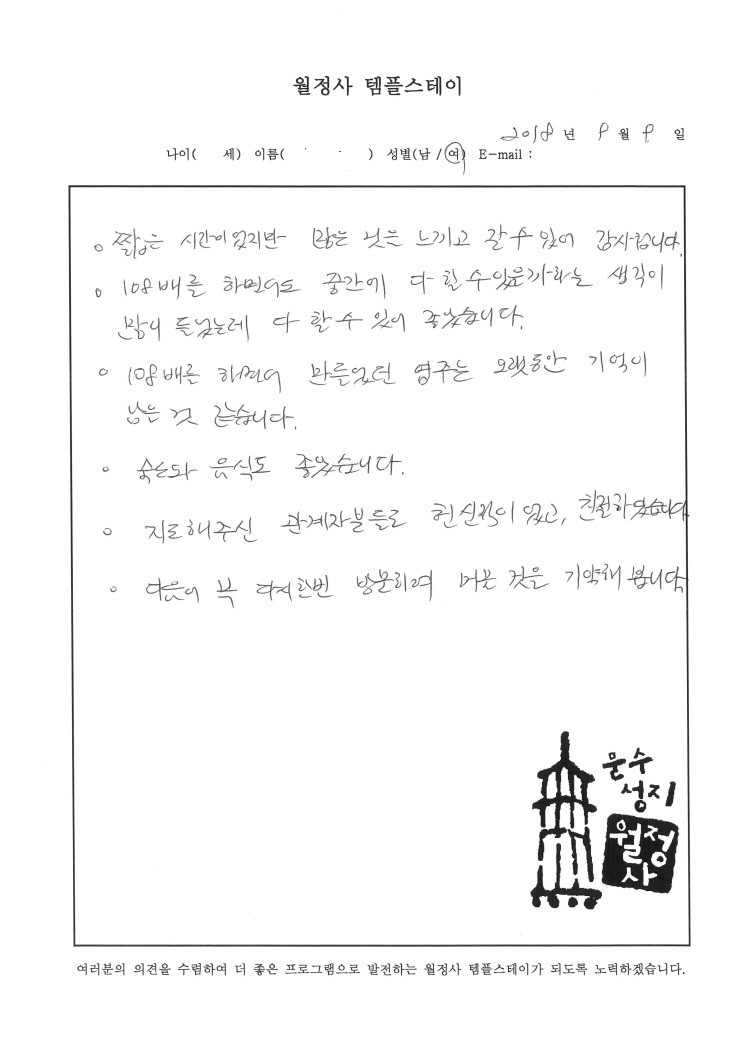 월정사 템플스테이
2018 년 9 월 9. 일
나이( 세) 이름( ) 성별(남 / 여) E-mail :
o 짧은 시간이었지만 많은 것은 느끼고 갈 수 있어 감사합니다.
o 108배를 하면서도 중간에 다 할 수 있을까라는 생각이
많이 들었는데 다 할 수 있어 좋았습니다.
o 108배를 하면서 만들었던 염주는 오랫동안 기억이
남은 것 같습니다.
o 숙소와 음식도 좋았습니다.
o 지도해주신 관계자분들도 헌신적이 였고, 친절하였습니다
o 다음에 꼭 다시한번 방문하여 머문 것을 기약해 봅니다
문수
성지
월정
사
여러분의 의견을 수렴하여 더 좋은 프로그램으로 발전하는 월정사 템플스테이가 되도록 노력하겠습니다.